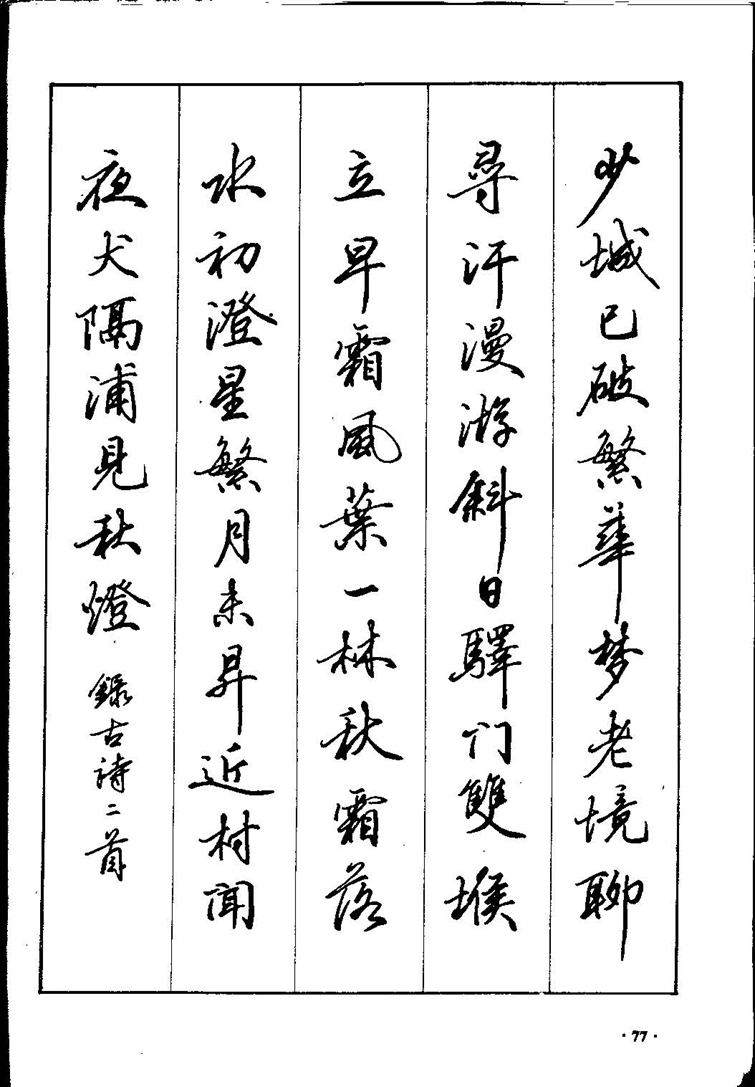 少城已破繁華梦老境聊
尋汗漫游斜日驛门雙堠
立早霜風葉一林秋霜落
水初澄星繁月未昇近村聞
夜犬隔浦見秋燈 錄古詩二首
·77·